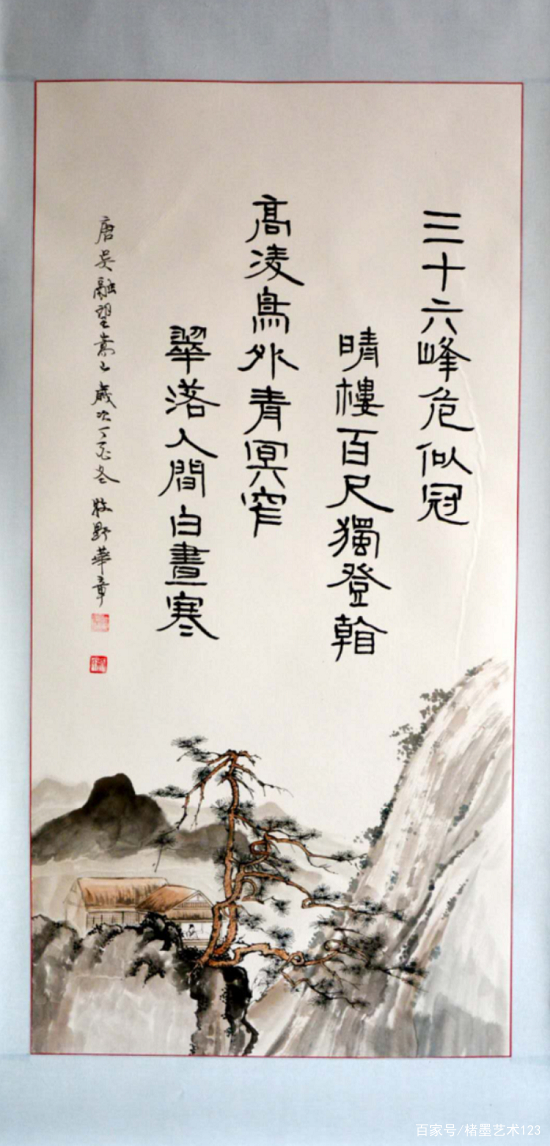 三十六峰危似冠
晴樓百尺獨登看
高凌鳥外青冥窄
翠落人間白晝寒
唐吳融望嵩山歲次丁亥冬牧野華章
百家号/楮墨艺术123